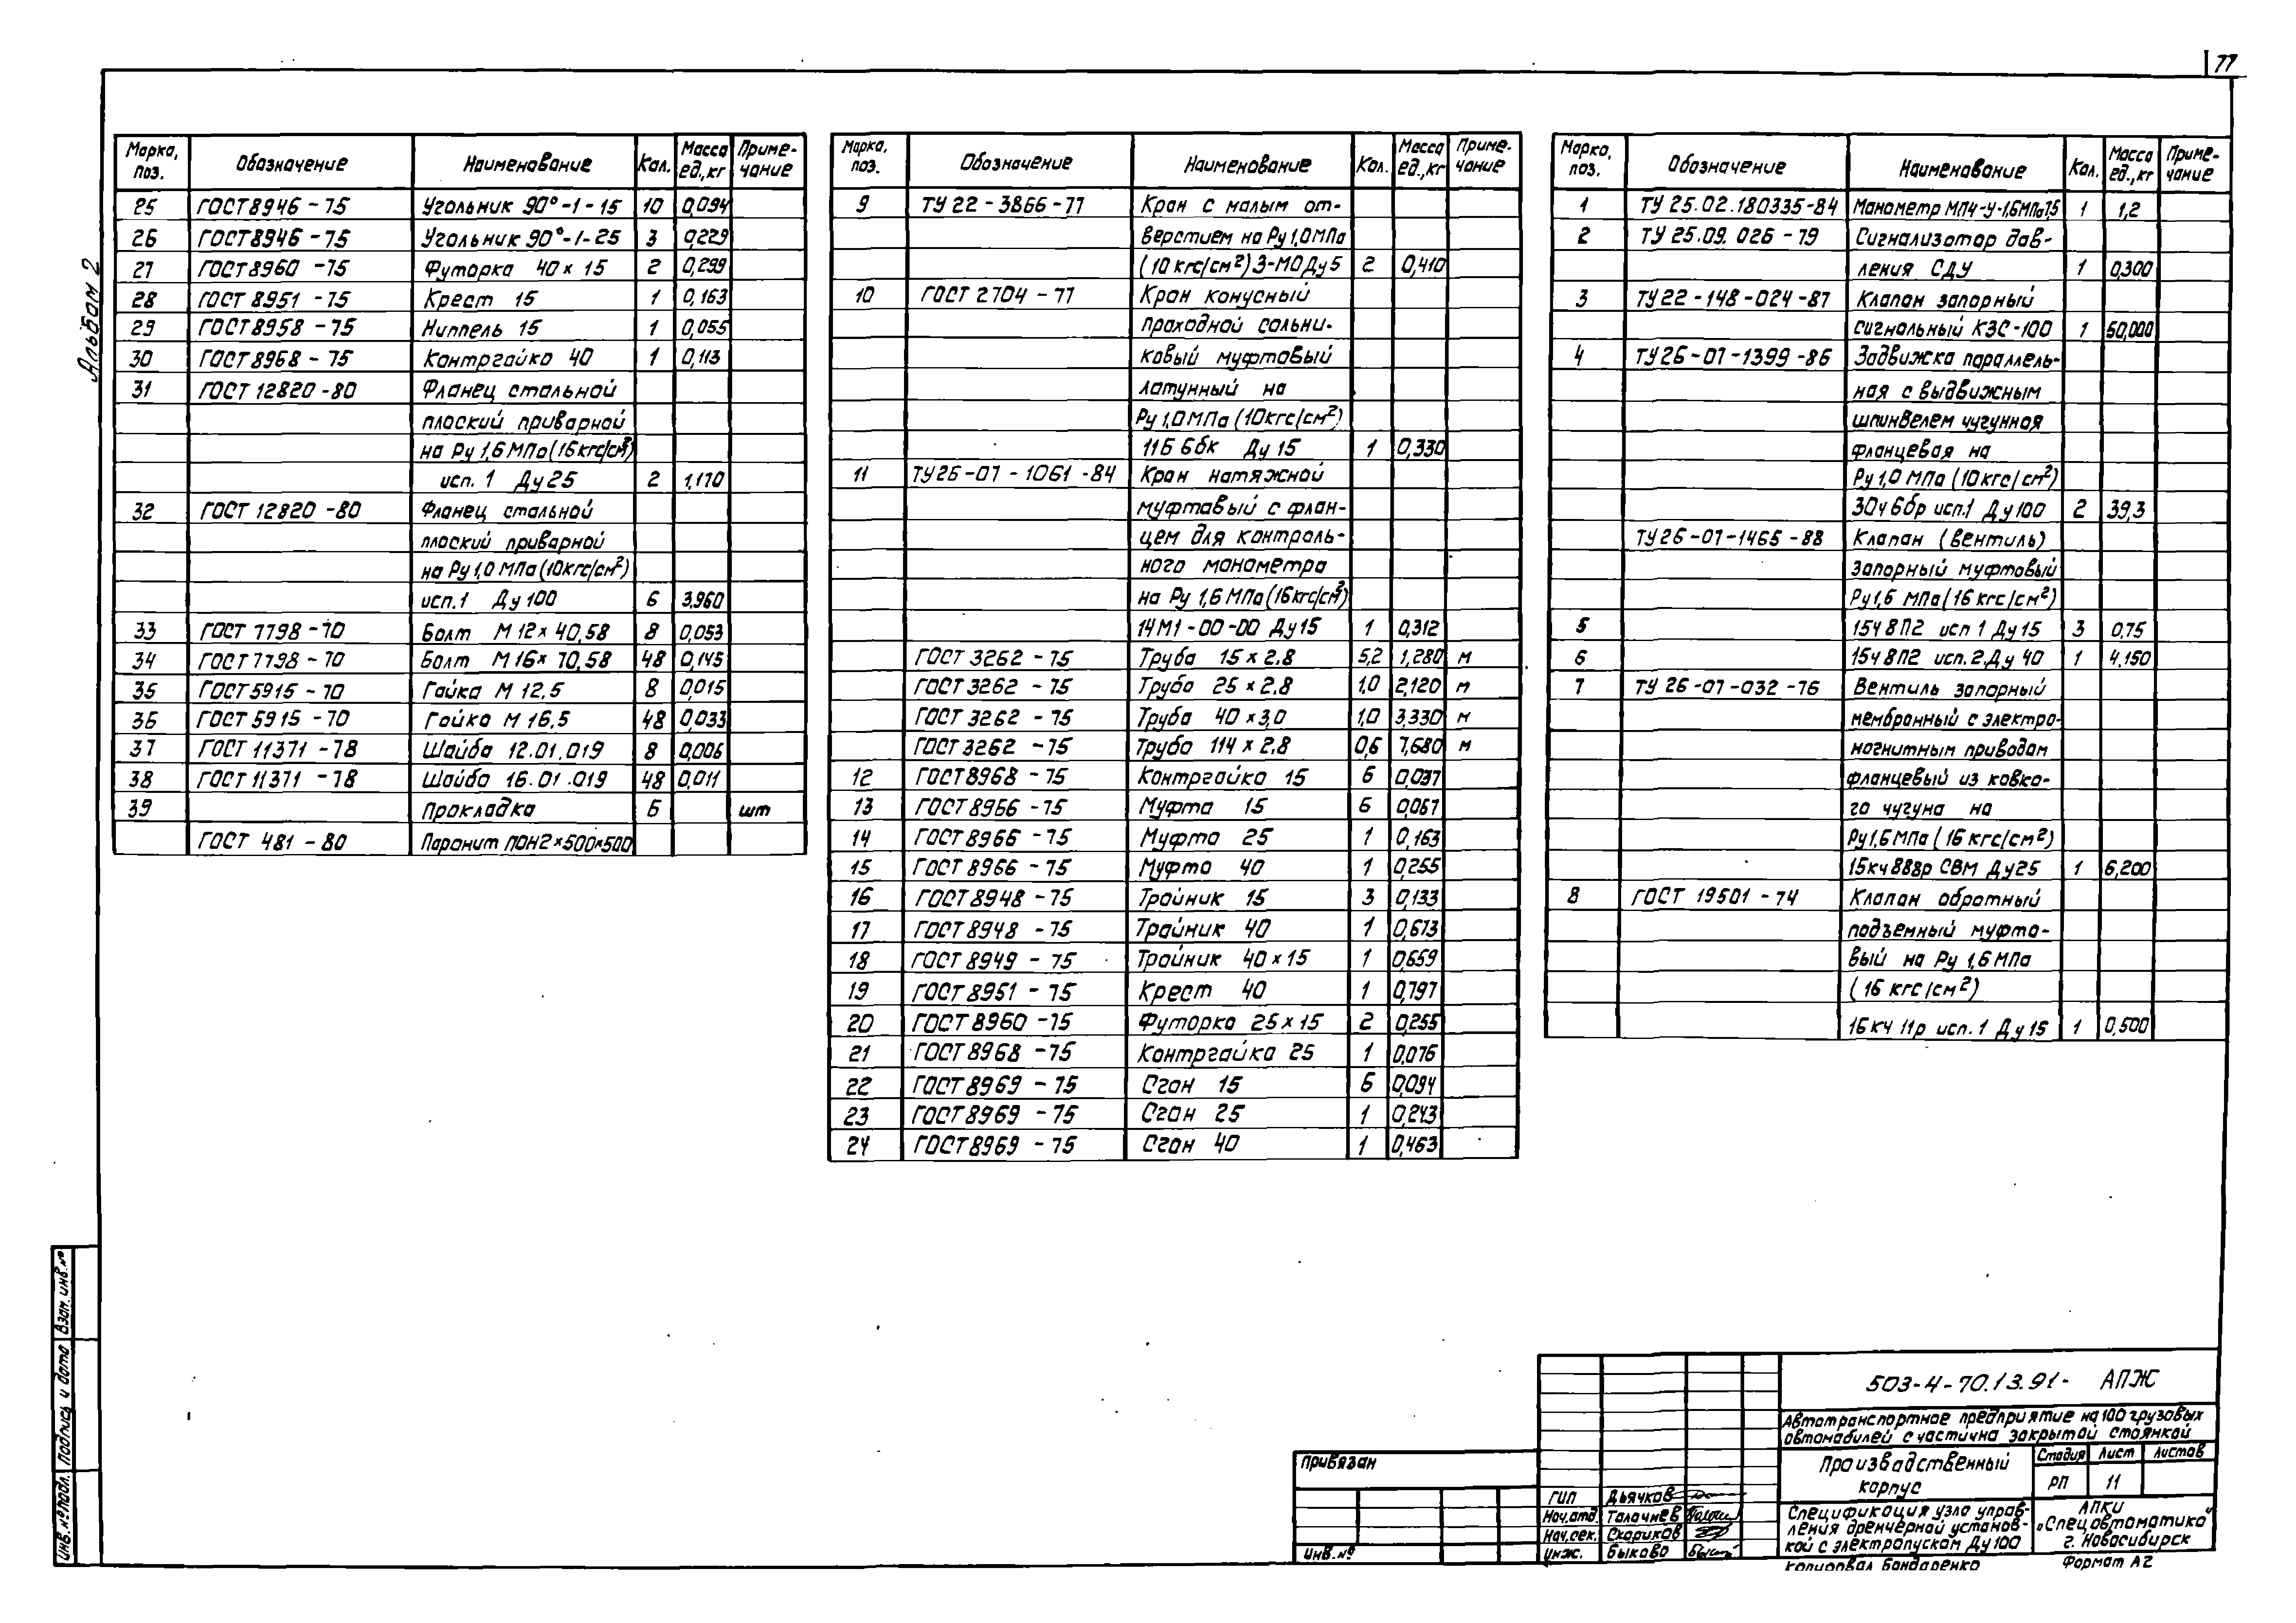 77
Альбом 2
Марка, поз. Обозначение Наименование Кол. Масса ед., кг Приме-чание
25 ГОСТ 8946-75 Угольник 90°-1-15 10 0,094
26 ГОСТ 8946-75 Угольник 90°-1-25 3 0,229
27 ГОСТ 8960-75 Футорка 40×15 2 0,299
28 ГОСТ 8951-75 Крест 15 1 0,163
29 ГОСТ 8958-75 Ниппель 15 1 0,055
30 ГОСТ 8968-75 Контргайка 40 1 0,113
31 ГОСТ 12820-80 Фланец стальной
плоский приварной
на Ру 1,6 МПа (16 кгс/см²)
исп. 1 Ду 25 2 1,170
32 ГОСТ 12820-80 Фланец стальной
плоский приварной
на Ру 1,0 МПа (10 кгс/см²)
исп. 1 Ду 100 6 3,960
33 ГОСТ 7798-70 Болт М 12×40,58 8 0,053
34 ГОСТ 7798-70 Болт М 16×70,58 48 0,145
35 ГОСТ 5915-70 Гайка М 12,5 8 0,015
36 ГОСТ 5915-70 Гайка М 16.5 48 0,033
37 ГОСТ 11371-78 Шайба 12.01.019 8 0,006
38 ГОСТ 11371-78 Шайба 16.01.019 48 0,011
39 Прокладка 6 шт
ГОСТ 481-80 Паронит ПОН2×500×500
Марка, поз. Обозначение Наименование Кол. Масса ед., кг Приме-чание
9 ТУ 22-3866-77 Кран с малым от-
верстием на Ру 1,0 МПа
(10 кгс/см²) 3-МО Ду 5 2 0,410
10 ГОСТ 2704-77 Кран конусный
проходной сальни-
ковый муфтовый
латунный на
Ру 1,0 МПа (10 кгс/см²)
11Б 6бк Ду 15 1 0,330
11 ТУ 26-07-1061-84 Кран натяжной
муфтовый с флан-
цем для контроль-
ного манометра
на Ру 1,6 МПа (16 кгс/см²)
14М1-00-00 Ду 15 1 0,312
ГОСТ 3262-75 Труба 15×2.8 5,2 1,280 м
ГОСТ 3262-75 Труба 25×2.8 1,0 2,120 м
ГОСТ 3262-75 Труба 40×3,0 1,0 3,330 м
ГОСТ 3262-75 Труба 114×2.8 0,6 7,680 м
12 ГОСТ 8968-75 Контргайка 15 6 0,037
13 ГОСТ 8966-75 Муфта 15 6 0,067
14 ГОСТ 8966-75 Муфта 25 1 0,163
15 ГОСТ 8966-75 Муфта 40 1 0,255
16 ГОСТ 8948-75 Тройник 15 3 0,133
17 ГОСТ 8948-75 Тройник 40 1 0,673
18 ГОСТ 8949-75 Тройник 40×15 1 0,659
19 ГОСТ 8951-75 Крест 40 1 0,797
20 ГОСТ 8960-75 Футорка 25×15 2 0,255
21 ГОСТ 8968-75 Контргайка 25 1 0,076
22 ГОСТ 8969-75 Сгон 15 6 0,094
23 ГОСТ 8969-75 Сгон 25 1 0,243
24 ГОСТ 8969-75 Сгон 40 1 0,463
Марка, поз. Обозначение Наименование Кол. Масса ед., кг Приме-чание
1 ТУ 25.02.180335-84 Манометр МП4-У-1,6МПа 1,5 1 1,2
2 ТУ 25.09.026-79 Сигнализатор дав-
ления СДУ 1 0,300
3 ТУ 22-148-024-87 Клапан запорный
сигнальный КЗС-100 1 50,000
4 ТУ 26-07-1399-86 Задвижка параллель-
ная с выдвижным
шпинделем чугунная
фланцевая на
Ру 1,0 МПа (10 кгс/см²)
30ч 6бр исп.1 Ду 100 2 39,3
ТУ 26-07-1465-88 Клапан (вентиль)
запорный муфтовый
Ру 1,6 МПа (16 кгс/см²)
5 15ч 8П2 исп 1 Ду 15 3 0,75
6 15ч 8П2 исп. 2 Ду 40 1 4,150
7 ТУ 26-07-032-76 Вентиль запорный
мембранный с электро-
магнитным приводом
фланцевый из ковко-
го чугуна на
Ру 1,6 МПа (16 кгс/см²)
15кч 888р СВМ Ду 25 1 6,200
8 ГОСТ 19501-74 Клапан обратный
подъемный муфто-
вый на Ру 1,6 МПа
(16 кгс/см²)
16 кч 11р исп. 1 Ду 15 1 0,500
Инв. № подл. Подпись и дата Взам. инв. №
Привязан
Инв. №
ГИП Дьячков
Нач. отд. Толачнев
Нач. сек. Скориков
Инж. Быкова
503-4-70.13.91- АПЖ
Автотранспортное предприятие на 100 грузовых
автомобилей с частично закрытой стоянкой
Производственный
корпус
Стадия Лист Листов
РП 11
Спецификация узла управ-
ления дренчерной установ-
кой с электропуском Ду 100
АПКИ
„Спецавтоматика"
г. Новосибирск
Копировал Бондаренко Формат А2